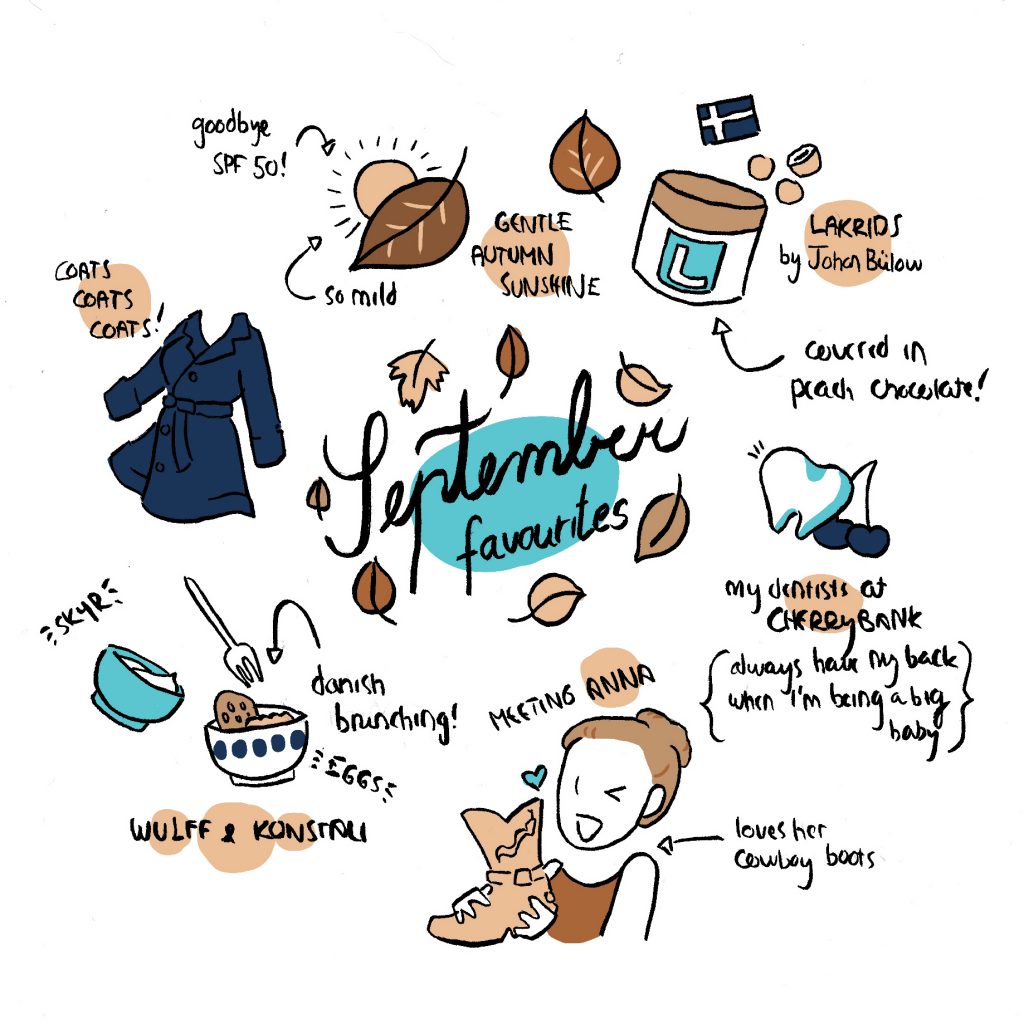 goodbye
SPF 50!
so mild
GENTLE
AUTUMN
SUNSHINE
L
LAKRIDS
by Johan Bülow
covered in
peach chocolate!
COATS
COATS
COATS!
September
favourites
my dentists at
CHERRYBANK
(always have my back
when I'm being a big
baby)
SKYR
danish
brunching!
EGGS
WULFF & KONSTALI
MEETING ANNA
loves her
cowboy boots